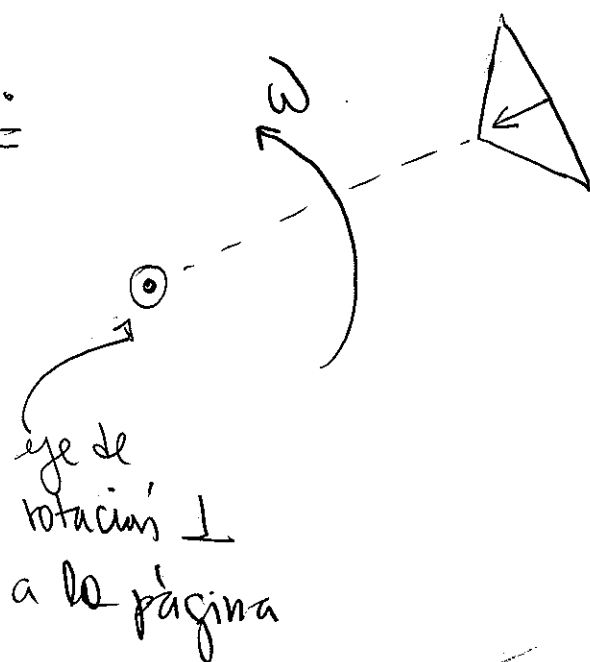 ω
eje de
rotación ⊥
a la página